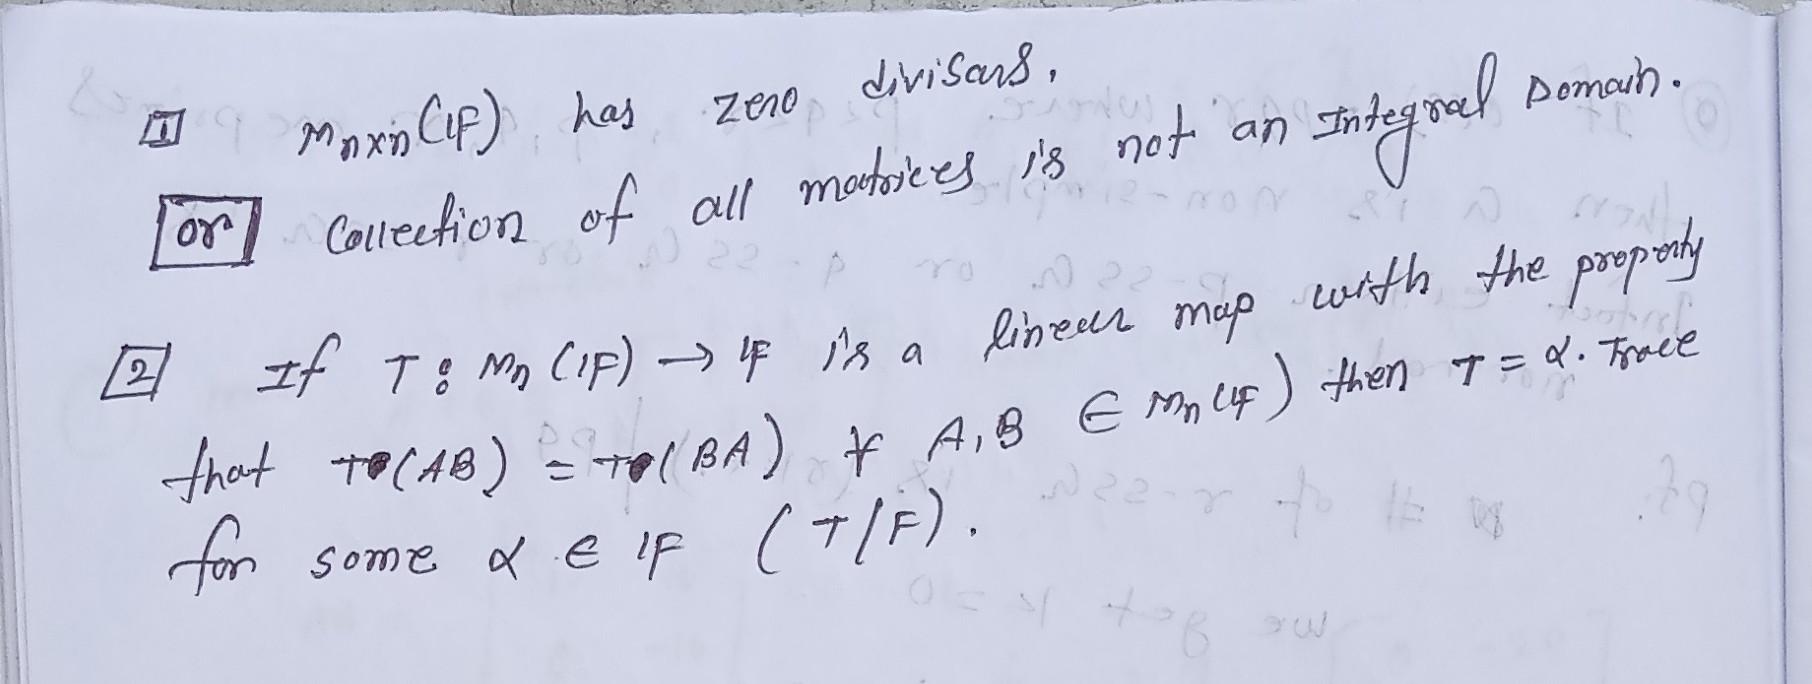 1 Mnxn(IF) has zero divisors.
or Collection of all matrices is not an Integral Domain.
2 If T : Mn (IF) → IF is a linear map with the property
that T(AB) = T(BA) ∀ A, B ∈ Mn(IF) then T = α. Trace
for some α ∈ IF (T/F).